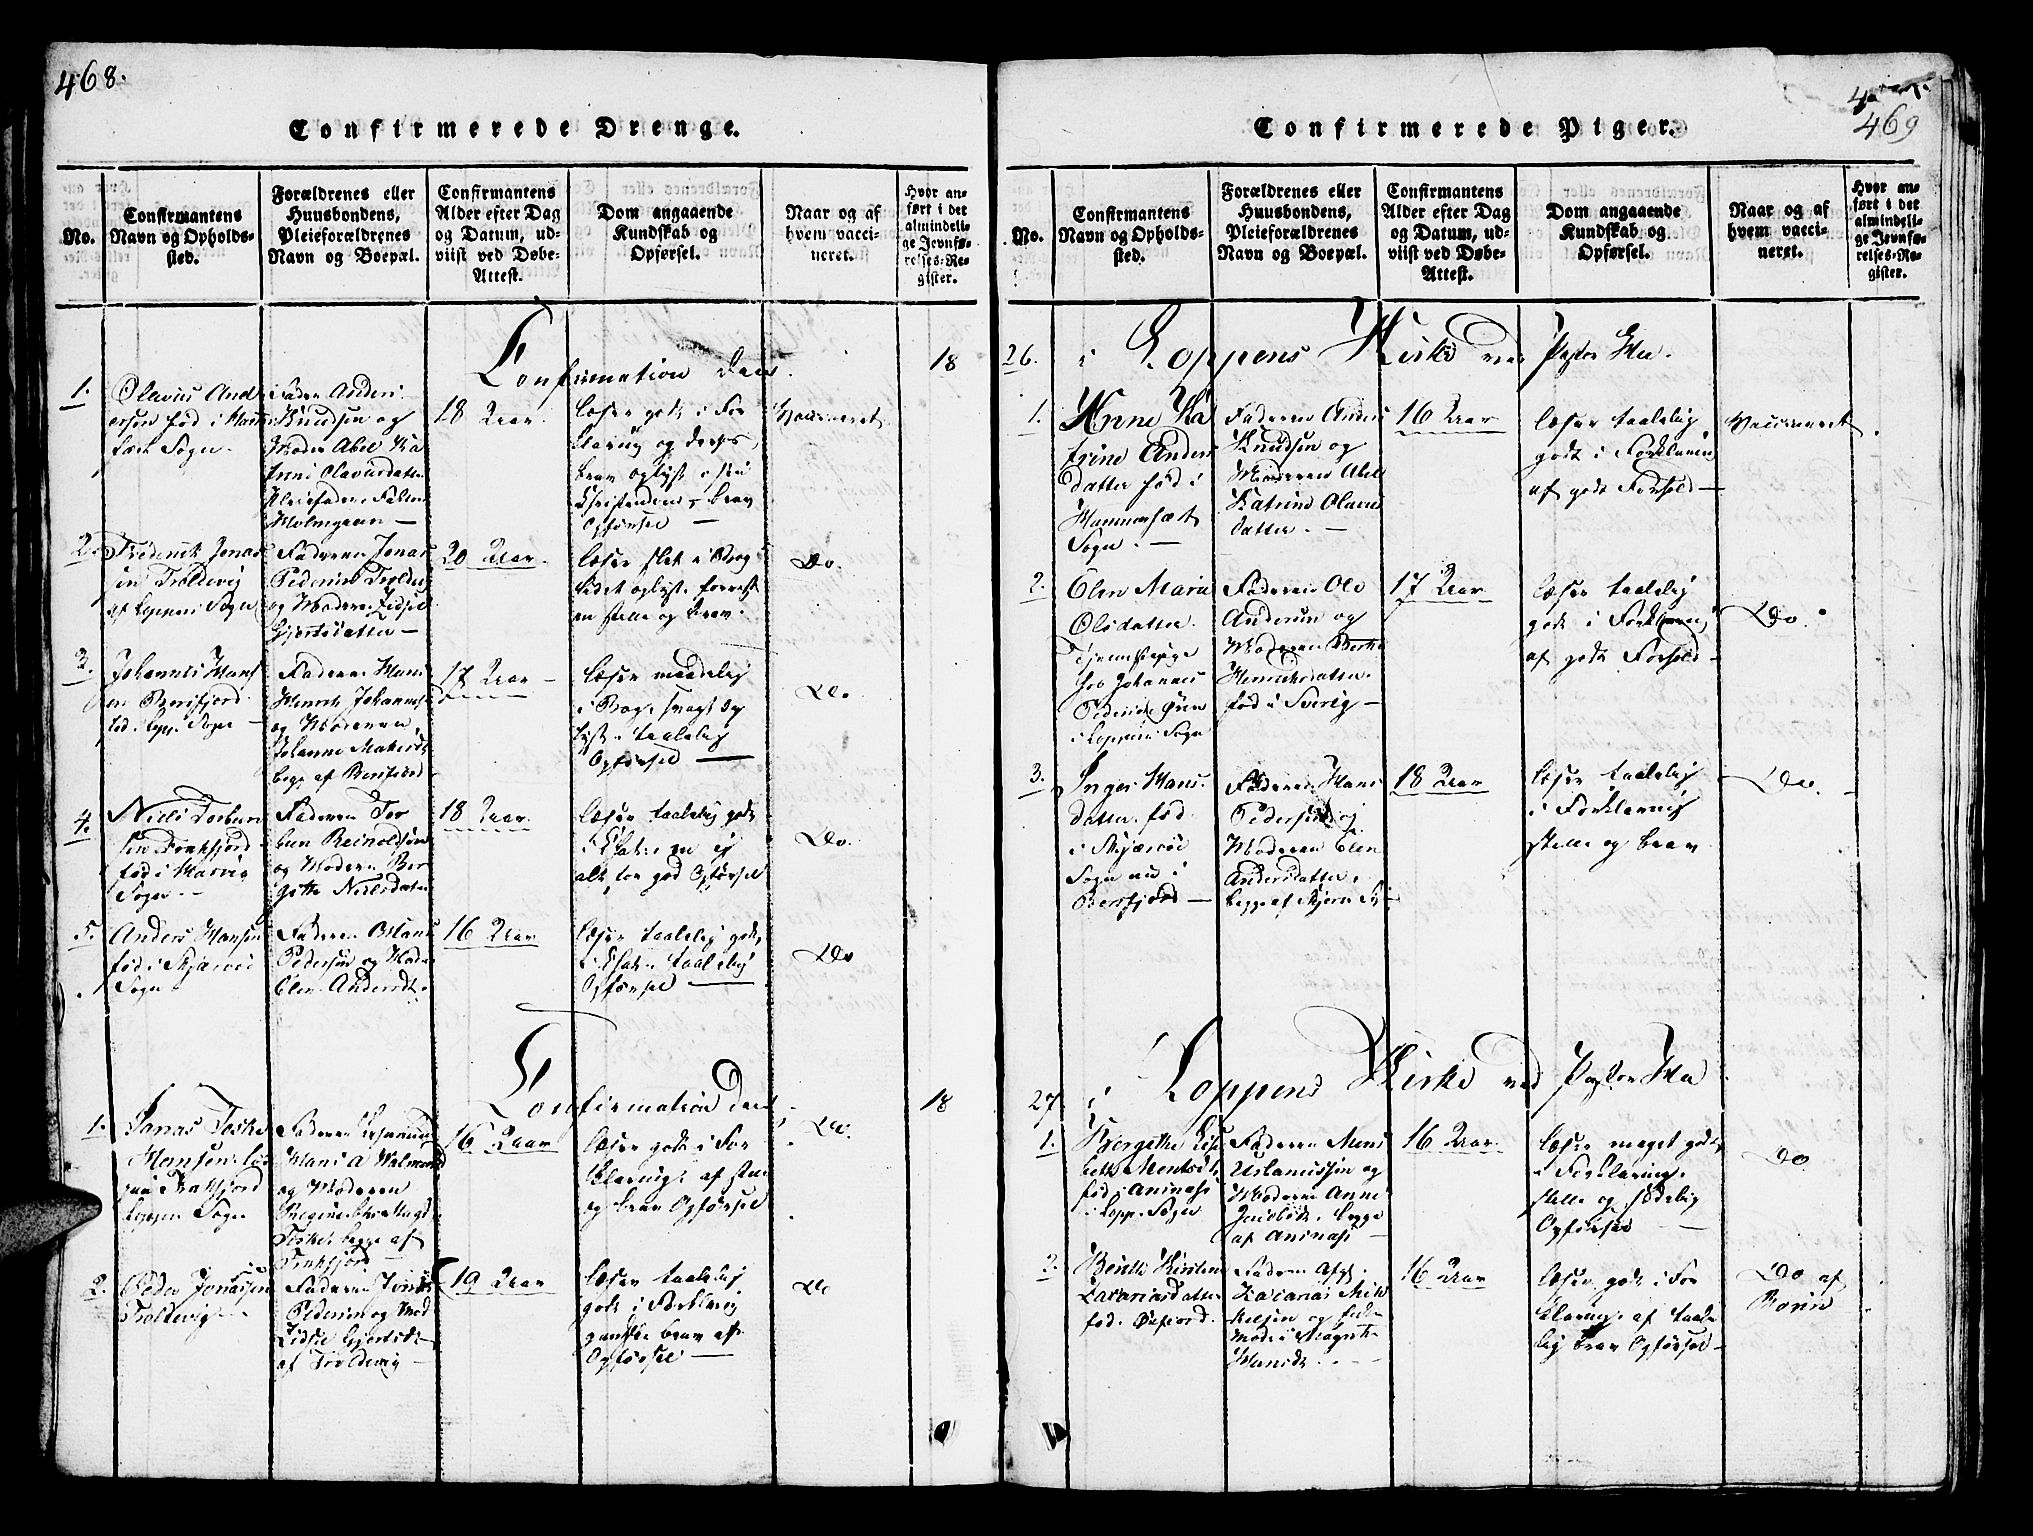 468.
Confirmerede Drenge.
No.
Confirmantens
Navn og Opholds-
sted.
Forældrenes eller
Huusbondens,
Pleieforældrenes
Navn og Boepæl.
Confirmantens
Alder efter Dag
og Datum, ud-
viist ved Døbe-
Attest.
Dom angaaende
Kundskab og
Opførsel.
Naar og af
hvem vacci-
neret.
Hvor an-
ført i det
almindeli-
ge Jevnfø-
relses-Re-
gister.
Confirmation den
18
1.
Olavius And
ersen fød i Ham
fæst Sogn.
Fader Anders
Knudsen og
Moder Abel Ka
trine Olavusdatter
Pleiefader
Holmgreen —
18 Aar.
læser godt i For
klaring og
brav oplyst i sin
Christendom, brav
Opførsel —
Vaccineret
2.
Frederik Jonas
sen Troldevig
af Loppens Sogn
Faderen Jonas
Pedersen Troldvig
og Moderen Zidsel
Gjertsdatter —
20 Aar.
læser slet i Bog
lidet oplyst. forrest
en stille og brav.
Do.
3.
Johannes Hans
en Bersfjord
fød i Lopp. Sogn —
Faderen Hans
Henrik Johannes
og Moderen
Johanne
begge af Bersfiord
17 Aar —
læser maadelig
i Bog. svagt op
lyst. taalelig
Opførsel —
Do.
4.
Niels Torburn
sen Frakfjord
fød i Hasvig
Sogn —
Faderen Tor
bun Reinoldsen
og Moderen Ber
gitte Nielsdatter
18 Aar.
læser taalelig godt
i
alt for god Opførsel
Do.
5.
Anders Hansen
fød i Skjærvøe
Sogn
Faderen Hans
Pedersen og Mode
Elen Andersdt.
16 Aar
læser taalelig godt,
taalelig
Opførsel —
Do
Confirmation den
18
1.
Jonas Foske
Hansen
paa Frakfjord
Loppen Sogn
Faderen
Hans A Halmrand
og Moderen
Regine
Foske, begge af
Frakfjord —
16 Aar
læser godt i For
klaring. af stille
og brav Opførsel
Do.
2.
Peder Jonassen
Troldevig —
Faderen Jonas
Pedersen og Mod
Zidsel Gjertsdt
af Troldevig —
19 Aar
læser taalelig
godt i Forklaring
ganske brav af
Opførsel —
Do
469
Confirmerede Piger.
No.
Confirmantens
Navn og Opholds-
sted.
Forældrenes eller
Huusbondens,
Pleieforældrenes
Navn og Boepæl.
Confirmantens
Alder efter Dag
og Datum, ud-
viist ved Døbe-
Attest.
Dom angaaende
Kundskab og
Opførsel.
Naar og af
hvem vacci-
neret.
Hvor an-
ført i det
almindeli-
ge Jevnfø-
relses-Re-
gister.
26. i Loppens Kirke ved Pastor Hu.
1.
Anne Ka
trine Anders
datter fød i
Hammerfæst
Sogn. —
Faderen Anders
Knudsen og
Moderen Abel
Katrine Olavus
datter. —
16 Aar
læser taalelig
godt i Forklaring
af godt Forhold —
Vaccineret.
2.
Elen Maria
Olsdatter.
Tjenestepige
hos Johannes
Pedersen Øren
i Loppens Sogn
Faderen Ole
Andersen og
Moderen Berthe
Henriksdatter.
fød i Sverig —
17 Aar
læser taalelig
godt i Forklaring
af godt Forhold —
Do.
3.
Inger Hans
datter. fød
i Skjærvøe
Sogn nu i
Bersfjord —
Faderen Hans
Pedersen og
Moderen Elen
Andersdatter,
begge af
18 Aar
læser taalelig
i Forklaring
stille og brav
Do. —
27. i Loppens Kirke ved Pastor Hu
1.
Bergithe Lis
beth Monsdt.
fød i Aninasi
Lopp. Sogn
Faderen Mons
Aslamussen og
Moderen Anne
Jacobsdt. begge
af Aninasi —
16 Aar.
læser meget godt,
i Forklaring.
stille og sædelig
Opførsel —
Do
2.
Berith Kirsten
Zacariasdatter
fød. Øxfiord.
Faderen Afgl.
Zacarias Mik
kelsen og
Moder Magret
Hansdt.
16 Aar
læser godt i For
klaring. af taale
lig brav Opførsel —
Do af
Borin